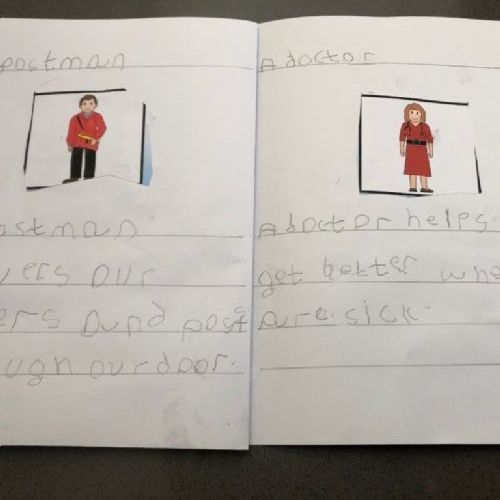 postman
astman
vers our
ers aund post
ugh our door.
A doctor
A doctor helps
get better whe
are sick.